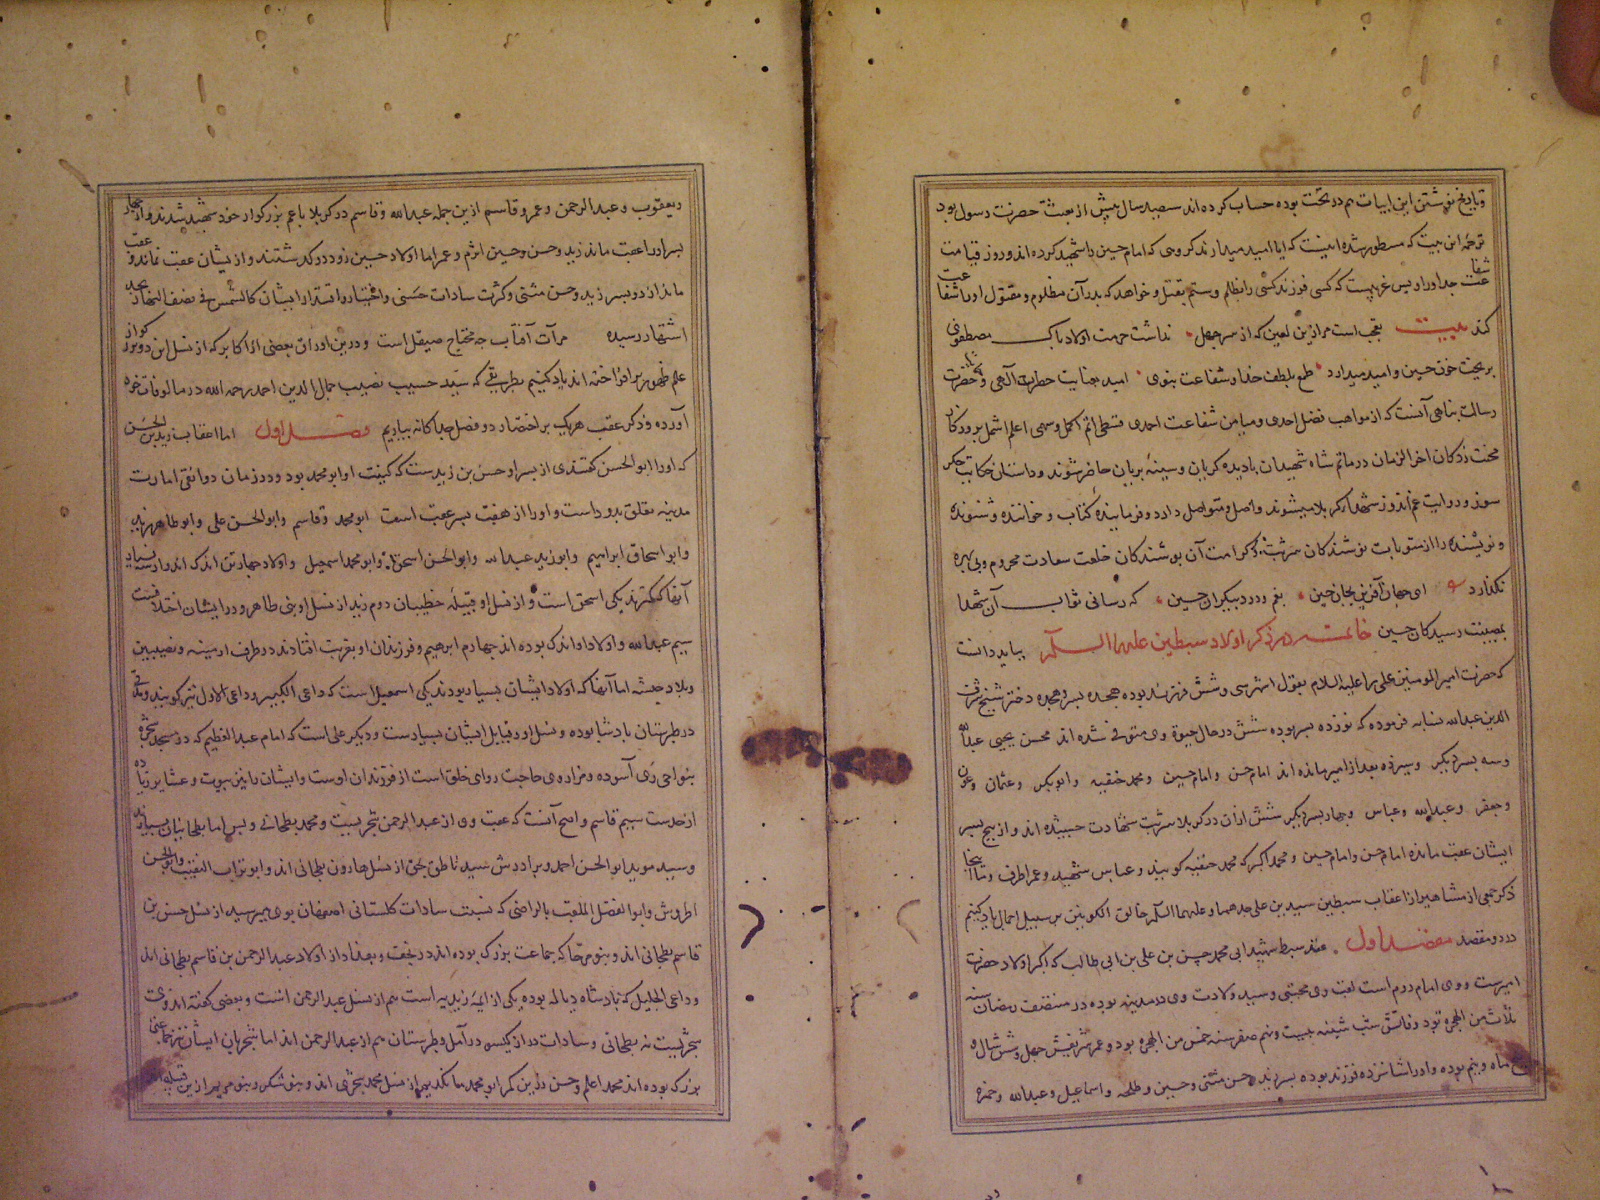 و تاریخ نوشتن این ابیات هم در تحت بوده حساب کرده اند سیصد سال پیش از بعثت حضرت رسول بود
ترجمه این بیت که مسطور شده اینست که ایا امید میدارند گروهی که امام حسین را شهید کرده اند در روز قیامت
شفاعت جد او را و بس غریبست که کسی فرزند کسی را بظلم و ستم بقتل و خواهد که پدر آن مظلوم و مقتول او را شفاعت
کند بیت عجب است مرا زین لعین که از سر جهل نداشت حرمت اولاد پاک مصطفوی
بریخت خون حسین و امید میدارد طمع بلطف خدا و شفاعت نبوی امید بعنایت حضرت الهی و حضرت
رسالت پناهی آنست که از مواهب فضل احدی و میامن شفاعت احمدی قسطی اتم اکمل و سهمی اعلم اشمل بروزکار
محنت زدکان اخر الزمان در ماتم شاه شهیدان با دیده کریان و سینه بریان حاضر شوند و داستان حکایت جکر
سوز و روایت غم اندوز شهداء کربلا میشنوند واصل و متواصل دارد و فرماینده کتاب و خواننده و شنونده
و نویسنده را از مثوبات نوشندکان شربت و کرامت آن پوشندکان خلعت سعادت محروم و بی بهره
نکذارد ای جهان آفرین بجان حسین بغم و درد بیکران حسین که رسانی ثواب آن شهدا
بمصیبت رسیدکان حسین خاتمه در ذکر اولاد سبطین علیهما السلام بباید دانست
که حضرت امیر المومنین علی را علیه السلام بقول اشهر سی و شش فرزند بوده هجده پسر و هجده دختر شیخ شرف
الدین عبدالله نسابه فرموده که نوزده پسر بوده شش در حال حیوة وی متوفی شده اند محسن یحیی عبدالله
و سه پسر دیکر و سیزده بعد از امیر مانده اند امام حسن و امام حسین و محمد حنفیه و ابوبکر و عثمان و عون
و جعفر و عبدالله و عباس و چهار پسر دیکر شش ازان در کربلا شربت شهادت چشیده اند و از پنج پسر
ایشان عقب مانده امام حسن و امام حسین و محمد اکبر که محمد حنفیه کویند و عباس شهید و عمر اطرف و ما اینجا
ذکر جمعی از مشاهیر از اعقاب سبطین سیدین علی جدهما و علیهما السلام خالق الکونین بر سبیل اجمال یاد کنیم
در دو مقصد مقصد اول عقد سبط شهید ابی محمد حسن بن علی بن ابی طالب که اکبر اولاد حضرت
امیرست و وی امام دوم است لقب وی مجتبی و سید ولادت وی در مدینه بوده در منتصف رمضان سنه
ثلاث من الهجره بود وفاتش شب شنبه بیست و نهم صفر سنه خمس من الهجره بود و عمر شریفش چهل و شش سال
ماه و پنج بوده و او را شانزده فرزند بوده پسر زید حسن مثنی و حسین و طلحه و اسماعیل و عبدالله و حمزه
و یعقوب و عبدالرحمن و عمر و قاسم ازین جمله عبدالله و قاسم در کربلا با عم بزرکوار خود شهید شدند و از چهار
پسر او را عقب ماند زید و حسن و حسین اثرم و عمر اما اولاد حسین زود در کذشتند و از ایشان عقب نماند و عقب
ماند از دو پسر زید و حسن مثنی و کثرت سادات حسنی و اختیار و اقتدار ایشان کالشمس فی نصف النهار بحد
اشتهار رسیده مرآت آفتاب چه محتاج صیقل است و درین اوران بعضی از اکابر که از نسل این دو بزرکوار
علم ظهور برافراخته اند یاد کنیم بطریقی که سید حسیب نصیب جمال الدین احمد رحمه الله در مالوفات خود
آورده و ذکر عقب هریک بر اختصار در دو فصل جداکانه بیاریم فصل اول اما اعقاب زید بن الحسن
که او را ابو الحسن کفتندی از پسر او حسن بن زیدست که کنیت او ابو محمد بود و در زمان دوانقی امارت
مدینه تعلق بدو داشت و او را از هفت پسر عقب است ابو محمد قاسم و ابو الحسن علی و ابو طاهر زید
و ابو اسحاق ابراهیم و ابو زید عبدالله و ابو الحسن اسحق و ابو محمد اسمعیل و اولاد چهارتن اندک اند و از سه بسیار
آنها که کمترند یکی اسحق است و از نسل او قبیله خطیبان دوم زید از نسل او بنی طاهر و در ایشان اختلافست
سیم عبدالله و اولاد او اندک بوده اند چهارم ابرهیم و فرزندان او بغربت افتادند در طرف ارمنیه و نصیبین
و بلاد حبشه اما آنها که اولاد ایشان بسیار بودند یکی اسمعیل است که داعی الکبیر و داعی الاول نیز کویند و مدتی
در طبرستان پادشا بوده و نسل او در قبایل ایشان بسیارست و دیکر علی است که امام عبدالعظیم که در مسجد شجره
بنواحی ری آسوده و مزار وی حاجت روای خلق است از فرزندان اوست و ایشان را بنین بیوت و عشایر زیاده
از حدست سیم قاسم و اصح آنست که عقب وی از عبدالرحمن شجریست و محمد بطحانی و بس اما بطحانیان بسیارند
و سید موید ابو الحسن احمد و برادرش سید ناطق بحق از نسل هارون بطحانی اند و ابو تراب النقیب و ابو الحسن
اطروش و ابو الفضل الملقب بالراضی که نسبت سادات کلستانی اصفهان بوی میرسد از نسل حسن بن
قاسم بطحانی اند و بنو مرتجا که جماعت بزرک بوده اند در نجف و بغداد از اولاد عبدالرحمن بن قاسم بطحانی اند
و داعی الجلیل که پادشاه دیالمه بوده یکی از ایمه زیدیه است هم از نسل عبدالرحمن است و بعضی کفته اند وی
شجریست نه بطحانی و سادات دراز کیسو در آمل و طبرستان هم از عبدالرحمن اند اما شجریان ایشان نیز جماعتی
بزرک بوده اند محمد اعلم و حسن و ابو محمد مانکدیم از نسل محمد شجری اند و بنو شکر و بنو مریم ازین قبیله اند